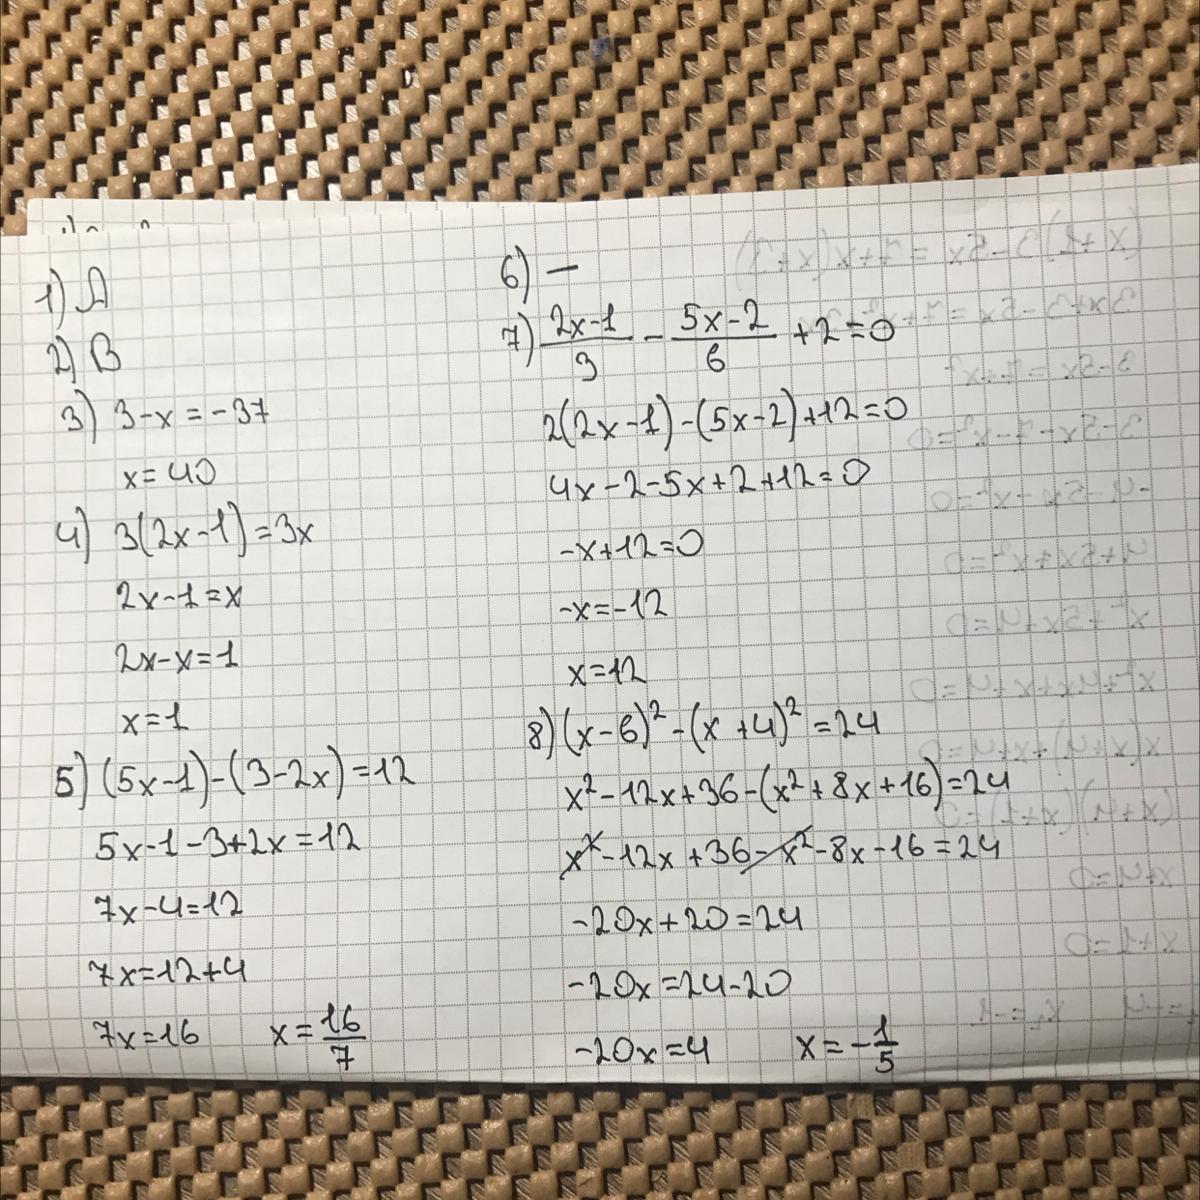 1) A
2) B
3) 3-x=-37
x=40
4) 3(2x-1)=3x
2x-1=x
2x-x=1
x=1
5) (5x-1)-(3-2x)=12
5x-1-3+2x=12
7x-4=12
7x=12+4
7x=16 x=16/7
6) —
7) (2x-1)/3 - (5x-2)/6 +2=0
2(2x-1)-(5x-2)+12=0
4x-2-5x+2+12=0
-x+12=0
-x=-12
x=12
8) (x-6)²-(x+4)²=24
x²-12x+36-(x²+8x+16)=24
x²-12x+36-x²-8x-16=24
-20x+20=24
-20x=24-20
-20x=4 x=-1/5